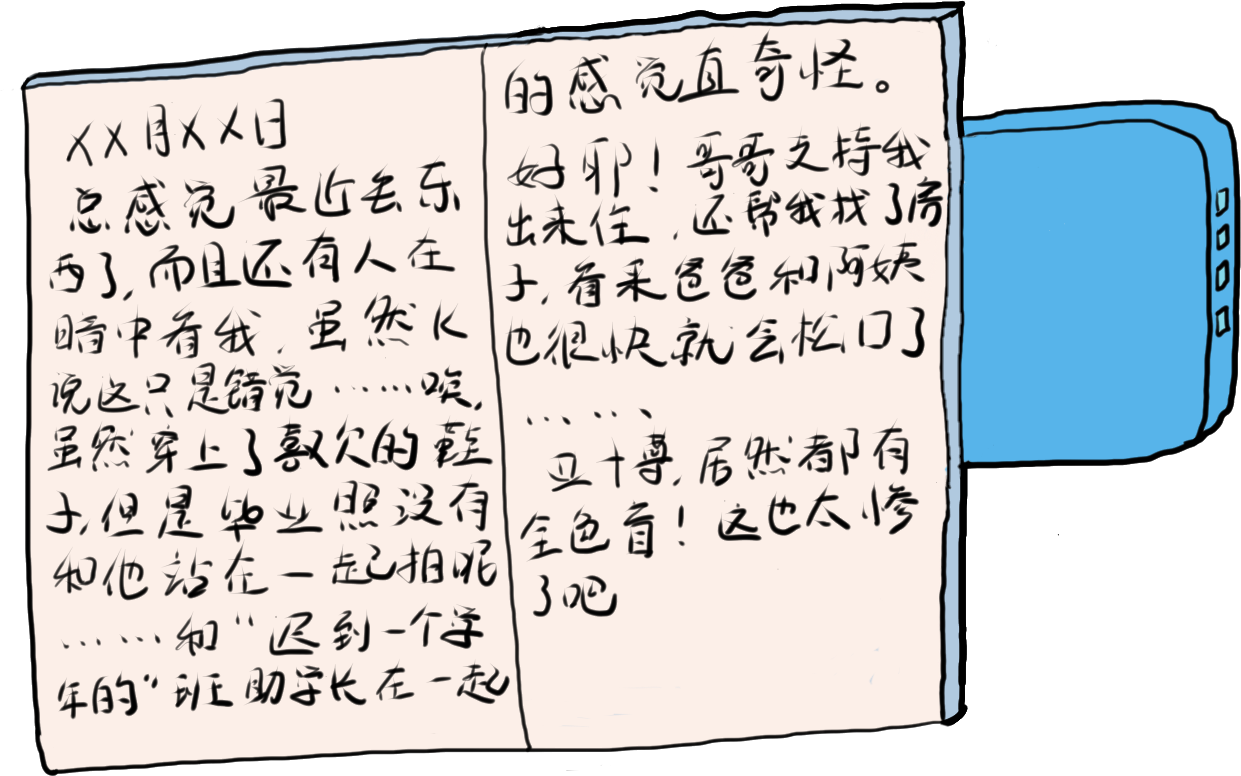 XX月XX日
总感觉最近丢东
西了,而且还有人在
暗中看我,虽然K
说这只是错觉……唉,
虽然穿上了喜欢的鞋
子,但是毕业照没有
和他站在一起拍呢
……和“迟到一个学
年的”班助学长在一起
的感觉真奇怪。
好耶!哥哥支持我
出来住,还帮我找了房
子,看来爸爸和阿姨
也很快就会松口了
……
五十尊,居然都有
全色盲!这也太惨
了吧